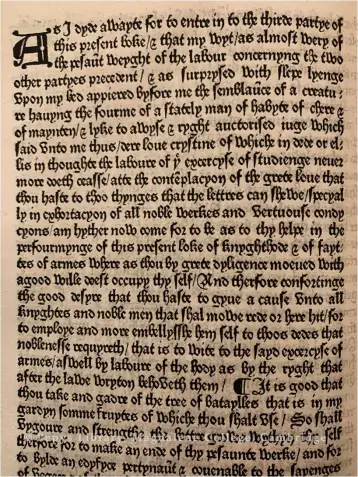 As I dyde awayte for to entre in to the thirde partye of
this present boke/& that my wyt/as almost wery of
the pesaūt weyght of the labour concernyng the two
other partyes precedent/ & as surprysed with slepe lyenge
vpon my bed appiered byfore me the semblaūce of a creatu:
re hauyng the fourme of a stately man of habyte of chere &
of maynten/& lyke to a wyse & ryght auctorised iuge whiche
said vnto me thus/dere loue crystine of whiche in dede or el:
lis in thoughte the laboure of yͤ excercyse of studienge neuer
more doeth ceasse/atte the contēplacyon of the grete loue that
thou haste to thoo thynges that the lettrees can shewe/specyal
ly in exhortacyon of all noble werkes and vertuouse condy
cyons am hyther now come for to be as to thy helpe in the
perfourmynge of this present boke of knyghthode & of fayt:
tes of armes where as thou by grete dyligence moeued with
a good wille doest occupy thy self/And therfore confortinge
the good desyre that thou haste to gyue a cause vnto all
knyghtes and noble men that shal mowe rede or here hit/for
to employe and more embellysshe hem self to thoos dedes that
noblenesse requyreth/that is to wite to the sayd excercyse of
armes/aswell by laboure of the body as by the ryght that
after the lawe wryton behoveth them/ ¶ It is good that
thou take and gadre of the tree of bataylles that is in my
gardyn somme fruytes of whiche thou shalt vse/ So shall
vygoure and strengthe the self
therfore for to make an ende of thy pesaunte werke/and for
to bylde an edyfyce pertynaūt & couenable to the sayenges